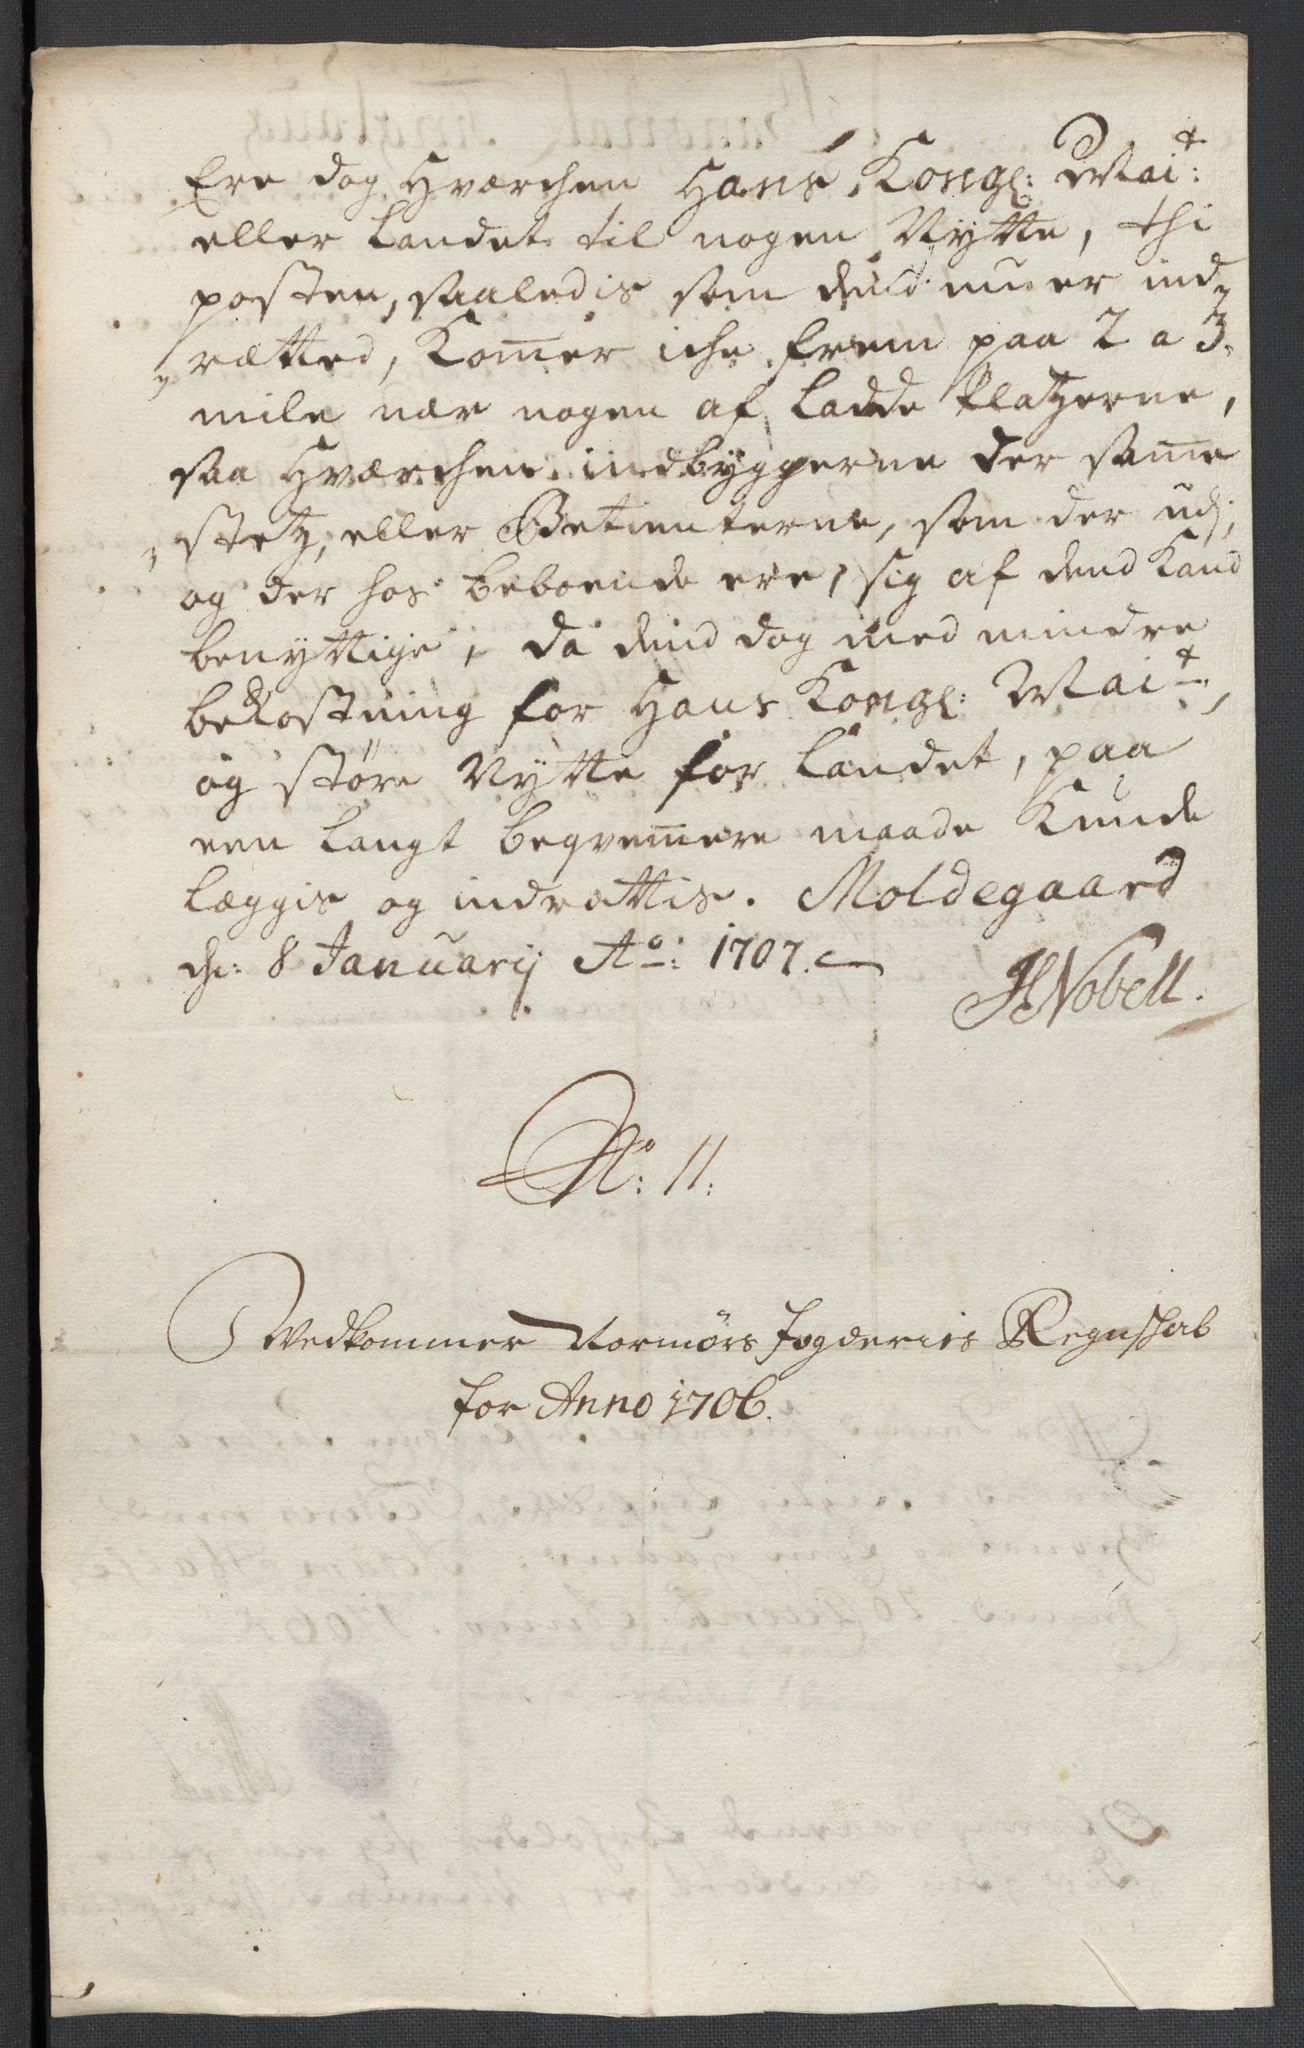 Ere dog Hværchen Hans Kongl: Mai^t:
eller Landet til nogen Nytte, thi
posten, saaledis som dend nu er ind¬
rætted, Kom̄er iche frem paa 2 a 3
mile nær nogen af Ladde Platzerne,
saa Hværchen indbyggerne der sam̄e
stetz, eller Betienterne, som der udj,
og der hos beboende ere, sig af dend Kand
benyttige, da dend dog med mindre
bekostning for Hans Kongl: Mai^t,
og støre Nytte for Landet, paa
een langt beqvem̄ere maade Kunde
læggis og indrættis. Moldegaard
d: 8 Januarij Ao: 1707.
HNobell.
No: 11:
Vedkommer Normørs fogderies Regnschab
for Anno 1706.